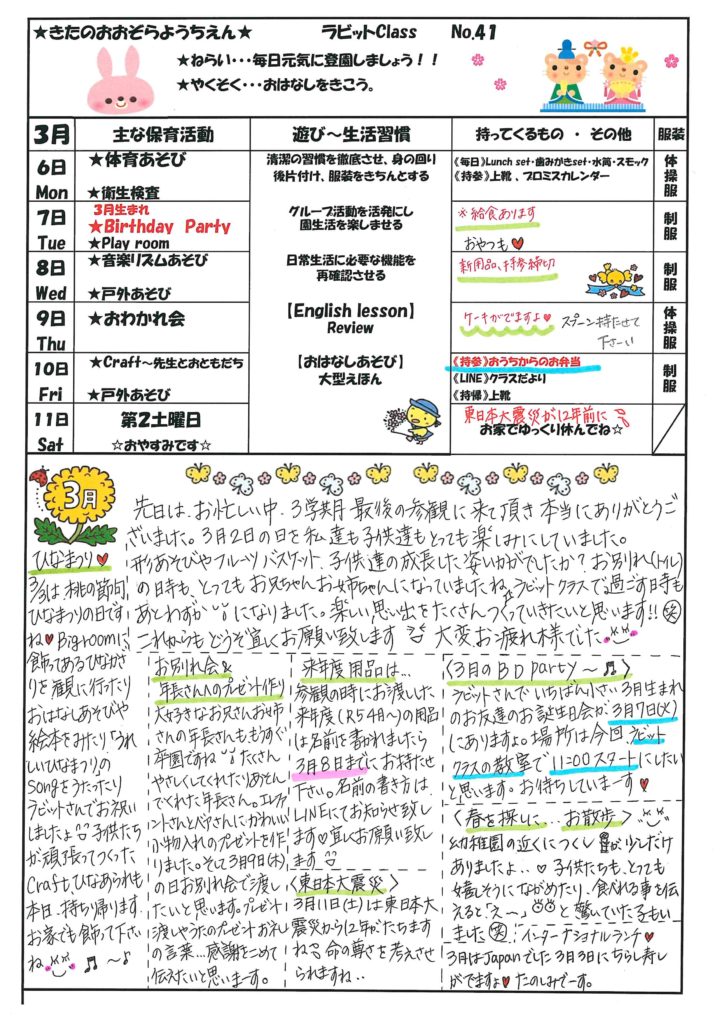 ★きたのおおぞらようちえん★ ラビットClass No.41
★ねらい・・・毎日元気に登園しましょう！！
★やくそく・・・おはなしをきこう。
3月 主な保育活動 遊び～生活習慣 持ってくるもの ・ その他 服装
6日 Mon
★体育あそび
★衛生検査
清潔の習慣を徹底させ、身の回り
後片付け、服装をきちんとする
《毎日》Lunch set・歯みがきset・水筒・スモック
《持参》上靴 、プロミスカレンダー
体操服
7日 Tue
3月生まれ
★Birthday Party
★Play room
グループ活動を活発にし
園生活を楽しませる
※給食あります
おやつも♥
制服
8日 Wed
★音楽リズムあそび
★戸外あそび
日常生活に必要な機能を
再確認させる
新用品、持参締切
制服
9日 Thu
★おわかれ会
【English lesson】
Review
ケーキがでますよ♥ スプーン持たせて
下さーい
体操服
10日 Fri
★Craft～先生とおともだち
★戸外あそび
【おはなしあそび】
大型えほん
《持参》おうちからのお弁当
《LINE》クラスだより
《持帰》上靴
制服
11日 Sat
第2土曜日
☆おやすみです☆
東日本大震災が12年前に
お家でゆっくり休んでね☆
3月
先日は、お忙しい中、3学期最後の参観に来て頂き本当にありがとうご
ざいました。3月2日の日を私達も子供達もとっても楽しみにしていました。
形あそびやフルーツバスケット、子供達の成長した姿いかがでしたか？お別れ(トイレ)
の時も、とってもお兄ちゃんお姉ちゃんになっていましたね。ラビットクラスで過ごす時も
あとわずかになりました。楽しい思い出をたくさんつくっていきたいと思います!!笑
これからもどうぞ宜しくお願い致します 大変お疲れ様でした
ひなまつり♥
3/3は桃の節句
ひなまつりの日です
ね♥Bigroomに
飾ってあるひなかざ
りを観に行ったり
おはなしあそびや
絵本をみたり、うれ
しいひなまつりの
Songをうたったり
ラビットさんでお祝い
しましたよ 子供たち
が頑張ってつくった
Craftひなあられも
本日、持ち帰ります
お家でも飾って下さい
ね ♫～♪
お別れ会&
年長さんのプレゼント作り
大好きなお兄さんお姉
さんの年長さんももうすぐ
卒園ですね たくさん
やさしくしてくれたりあそん
でくれた年長さん。エレファ
ントさんとベアさんにかわいい
小物入れのプレゼントを作
りました。そして3月9日(木)
の日お別れ会で渡し
たいと思います。プレゼント
渡しやうたのプレゼントお礼
の言葉…感謝をこめて
伝えたいと思います。
来年度用品は…
参観の時にお渡しした
来年度(R5 4月～)の用品
は名前を書かれましたら
3月8日までにお持たせ
下さい。名前の書き方は、
LINEにてお知らせ致し
ます♥宜しくお願い致し
ます
〈東日本大震災〉
3月11日(土)は東日本大
震災から12年がたちます
ね 命の尊さを考えさせ
られますね‥
〈3月のBD party～♫〉
ラビットさんでいちばん小さい3月生まれ
のお友達のお誕生日会が3月7日(火)
にありますよ。場所は今回、ラビット
クラスの教室で11:00スタートにしたい
と思います。お待ちしていまーす♥
〈春を探しに…お散歩〉
幼稚園の近くにつくしが少しだけ
ありましたよ‥♥子供たちも、とっても
嬉しそうにながめたり、食べれる事を伝
えると「え～」と驚いていた子もい
ました笑 インターナショナルランチ♥
3月はJapanでした 3月3日にちらし寿し
がでますよ♥ たのしみでーす。